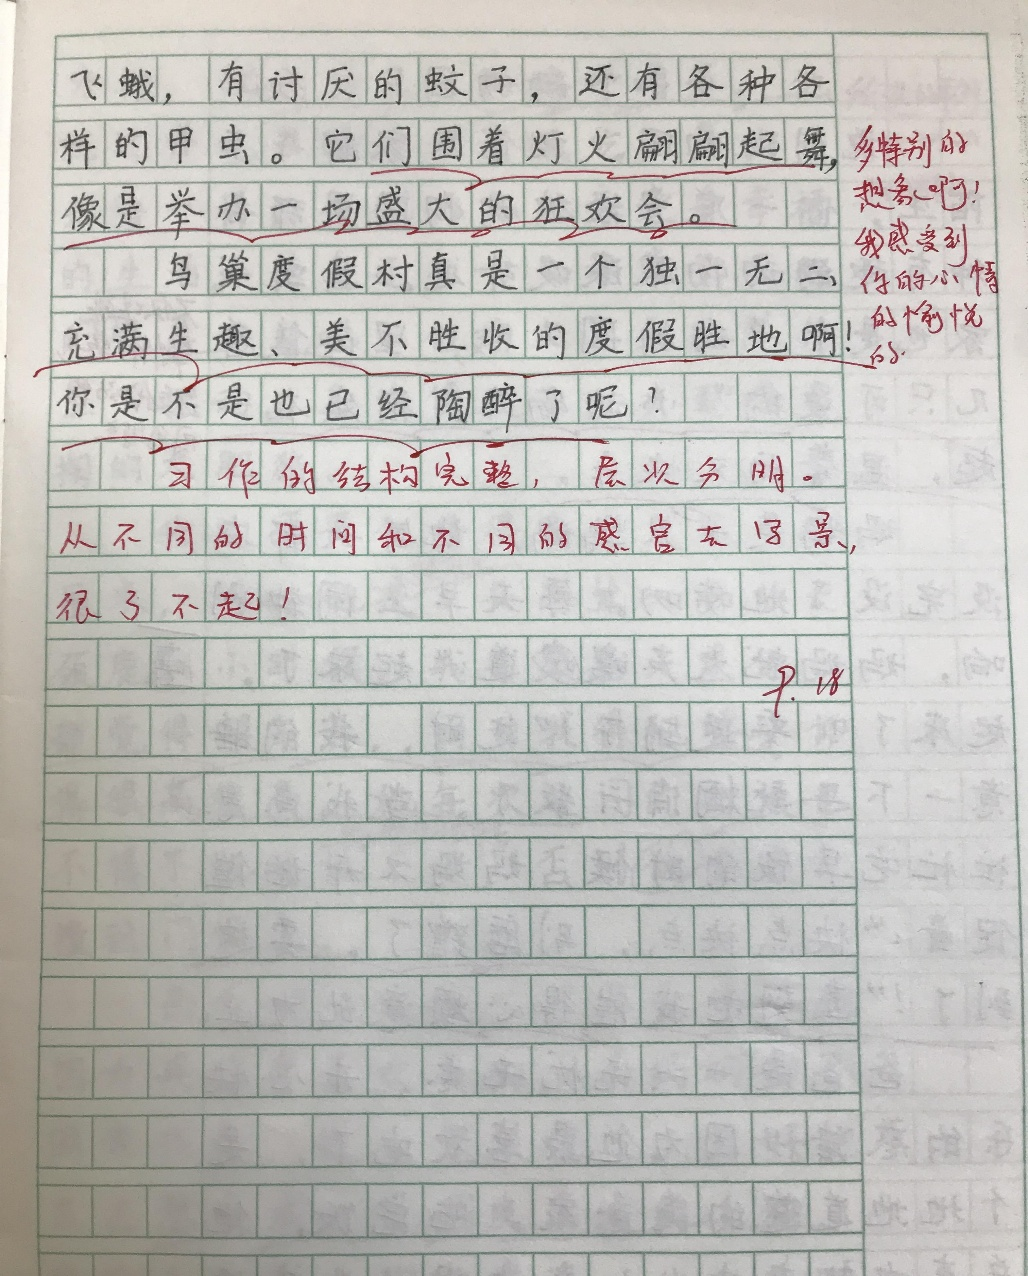 飞蛾，有讨厌的蚊子，还有各种各
样的甲虫。它们围着灯火翩翩起舞，
像是举办一场盛大的狂欢会。
鸟巢度假村真是一个独一无二、
充满生趣、美不胜收的度假胜地啊！
你是不是也已经陶醉了呢？
多特别的
想象啊！
我感受到
你的心情
的愉悦
的.
习作的结构完整，层次分明。
从不同的时间和不同的感官去写景，
很了不起！
9.18